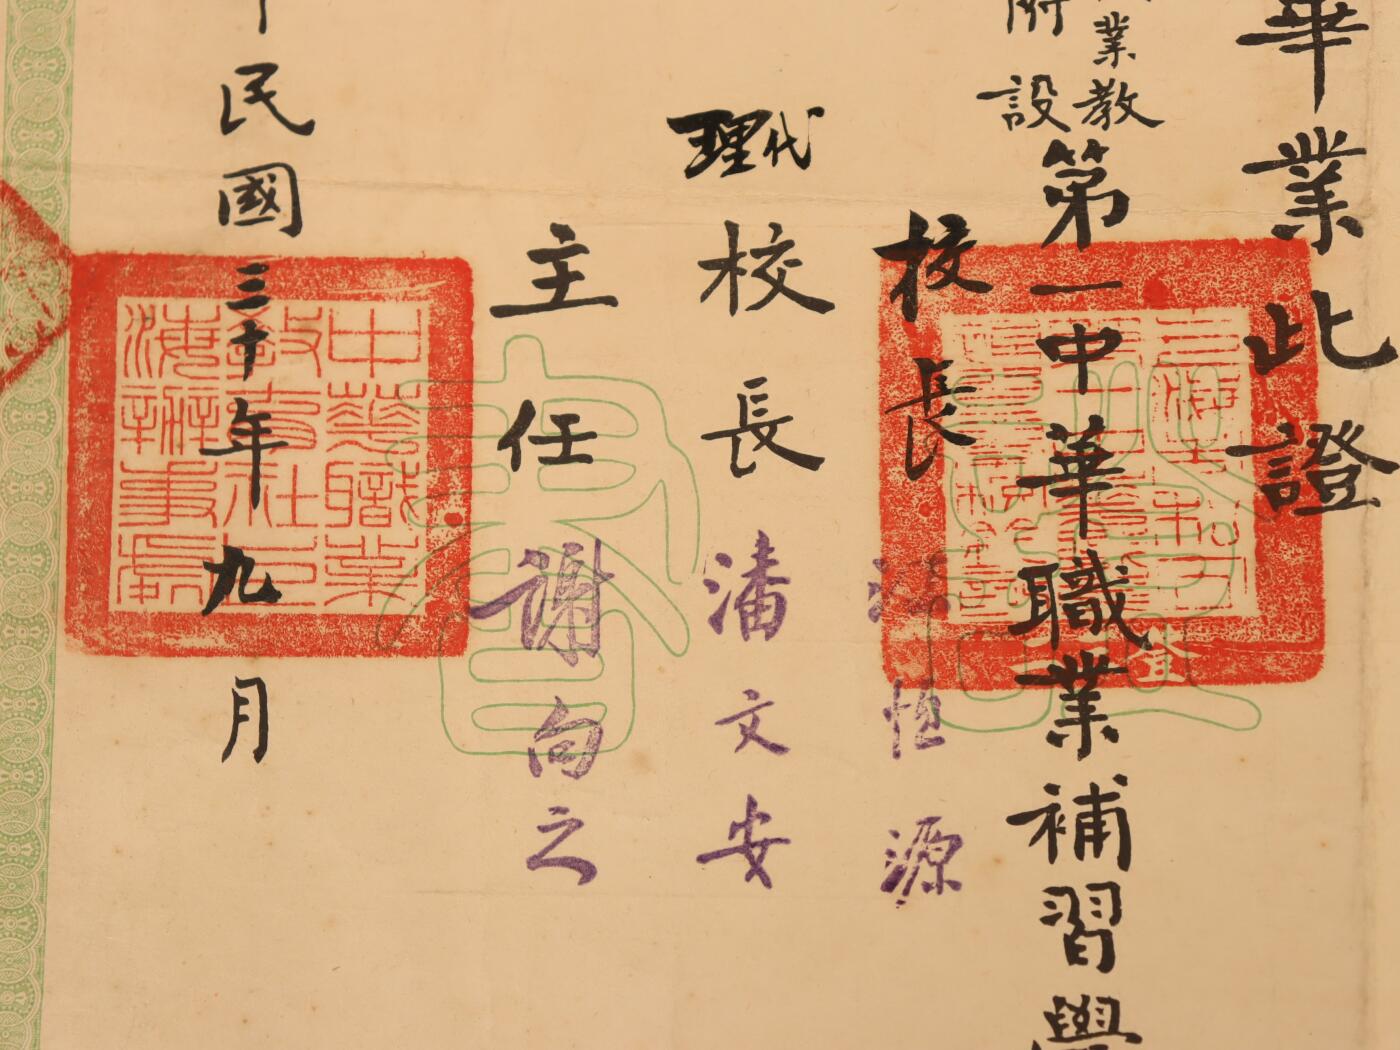 華業此證
業教
設
第一中華職業補習學
校長 恒源
代理
校長 潘文安
主任 謝向之
民國三十年九月
中華職業
教育社上
海辦事處
登